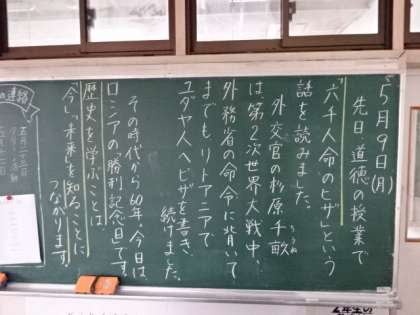 5月9日(月)
先日、道徳の授業で
"六千人命のビザ"という
話を読みました。
外交官の杉原千畝
ちうね
は、第2次世界大戦中、
外務省の命令に背いて
までも、リトアニアで
ユダヤ人へビザを書き
続けました。
その時代から60年。今日は
ロシアの勝利記念日です。
歴史を学ぶことは
"今、未来"を知ることに
つながります。
連絡